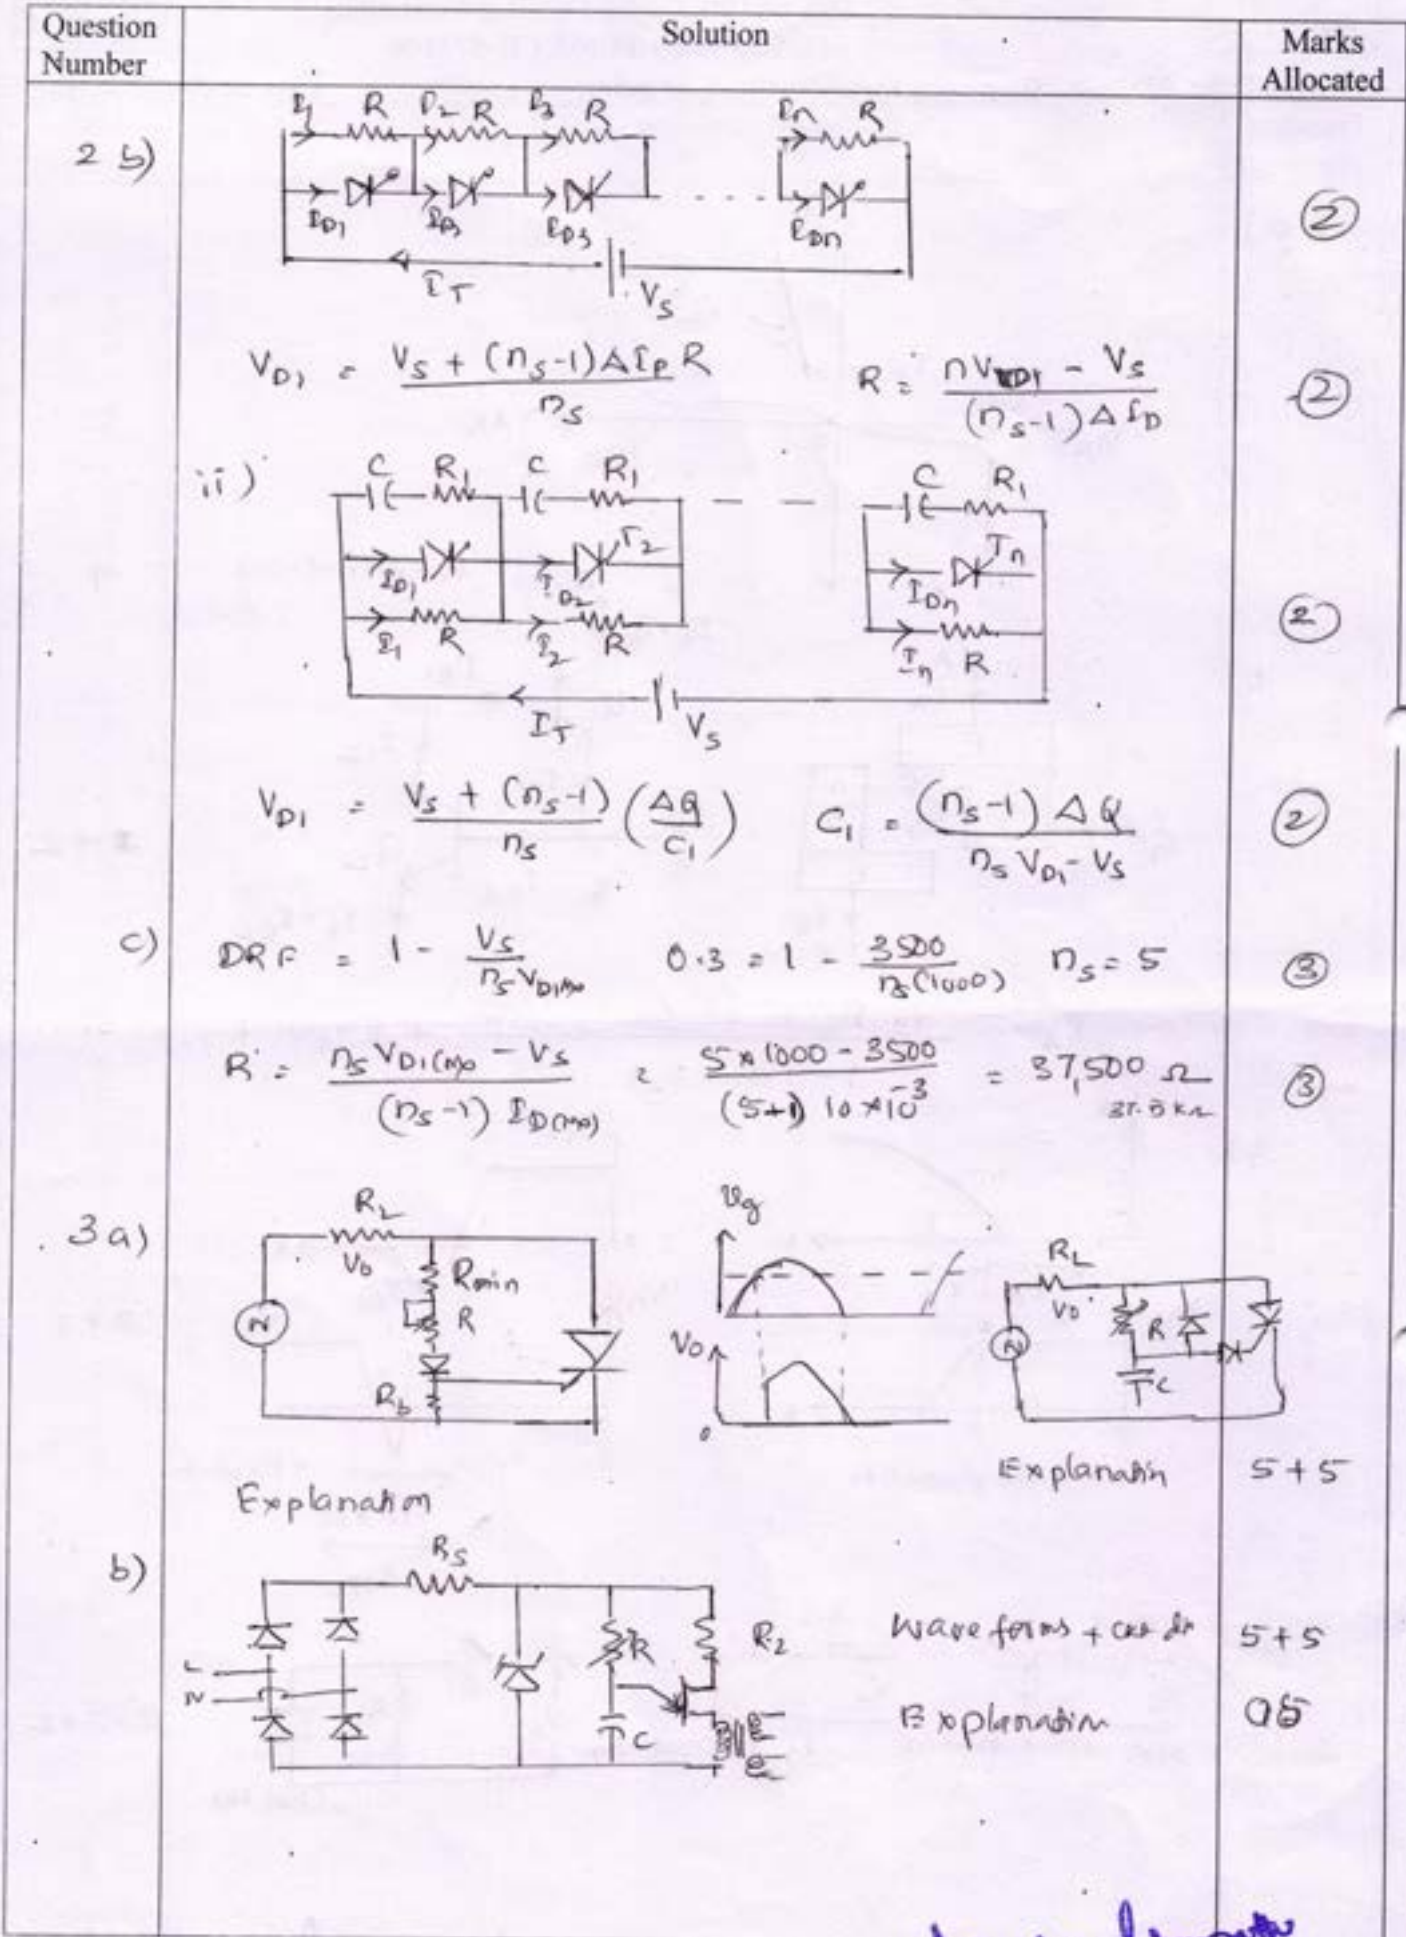 Question Number Solution Marks Allocated
2 b)
I1 R I2 R I3 R In R
ID1 ID3 ID3 IDn
(2)
IT VS
VD1 = (VS + (nS-1) ΔIP R) / nS R = (nVD1 - VS) / ((nS-1) ΔID) (2)
ii)
C R1 C R1 C R1
ID1 ID2 T2 IDn Tn
I1 R I2 R In R (2)
IT VS
VD1 = (VS + (nS-1)) / nS (ΔQ / C1) C1 = ((nS-1) ΔQ) / (nS VD1 - VS) (2)
c) DRF = 1 - VS / (nS VD1(Mx)) 0.3 = 1 - 3500 / (nS(1000)) nS = 5 (3)
R = (nS VD1(Mx) - VS) / ((nS-1) ID(Mx)) = (5 × 1000 - 3500) / ((5+1) 10 × 10^-3) = 37,500 Ω (3)
37.5 KΩ
3 a)
RL Vo Rmin R Rb
Vg Vo 0
RL Vo R C
Explanation 5+5
Explanation
b)
RS
L
N
R R2 C
Wave forms + 5+5
Explanation 05